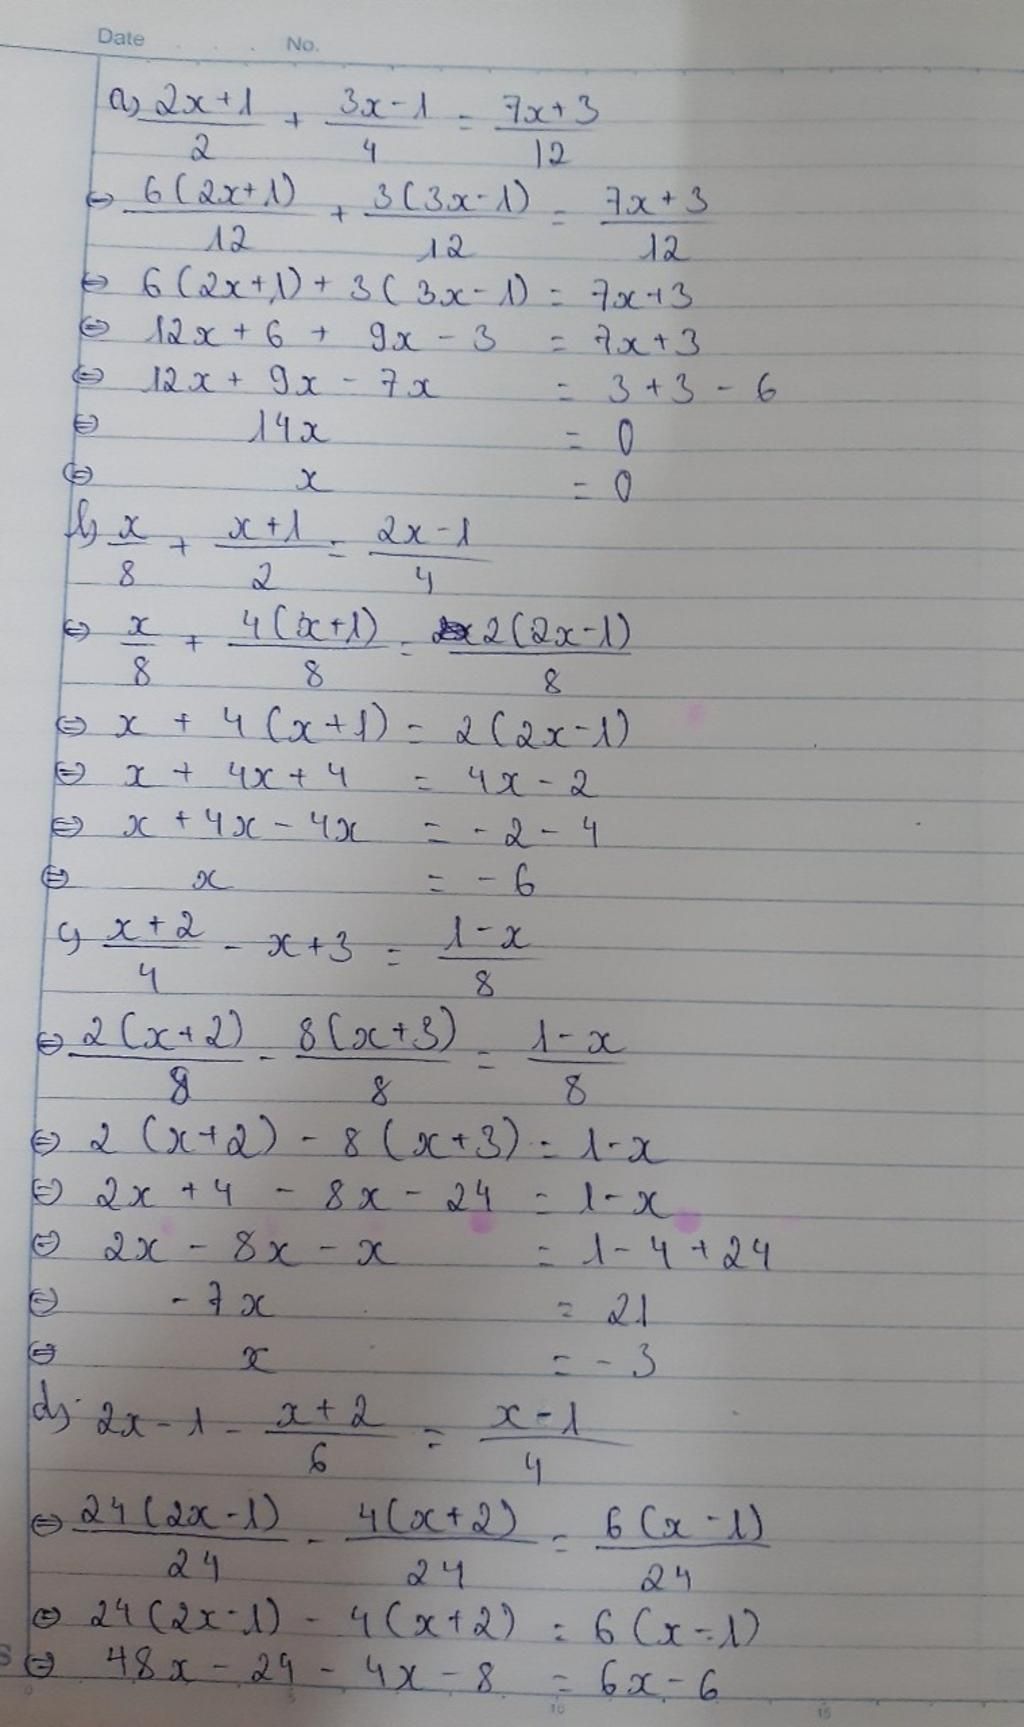 Date . . . No.
a) (2x+1)/2 + (3x-1)/4 = (7x+3)/12
⇔ 6(2x+1)/12 + 3(3x-1)/12 = (7x+3)/12
⇔ 6(2x+1) + 3(3x-1) = 7x+3
⇔ 12x + 6 + 9x - 3 = 7x+3
⇔ 12x + 9x - 7x = 3+3-6
⇔ 14x = 0
⇔ x = 0
b) x/8 + (x+1)/2 = (2x-1)/4
⇔ x/8 + 4(x+1)/8 = 2(2x-1)/8
⇔ x + 4(x+1) = 2(2x-1)
⇔ x + 4x + 4 = 4x - 2
⇔ x + 4x - 4x = -2 - 4
⇔ x = -6
c) (x+2)/4 - x+3 = (1-x)/8
⇔ 2(x+2)/8 - 8(x+3)/8 = (1-x)/8
⇔ 2(x+2) - 8(x+3) = 1-x
⇔ 2x + 4 - 8x - 24 = 1-x
⇔ 2x - 8x - x = 1-4+24
⇔ -7x = 21
⇔ x = -3
d) 2x-1 - (x+2)/6 = (x-1)/4
⇔ 24(2x-1)/24 - 4(x+2)/24 = 6(x-1)/24
⇔ 24(2x-1) - 4(x+2) = 6(x-1)
⇔ 48x - 24 - 4x - 8 = 6x - 6
10 15